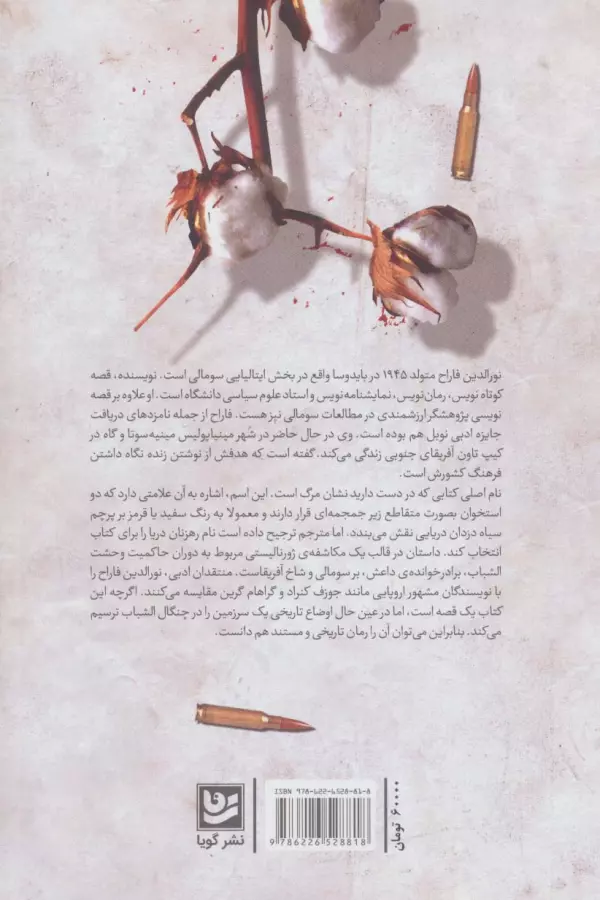 نورالدین فاراح متولد ۱۹۴۵ در بایدوسا واقع در بخش ایتالیایی سومالی است. نویسنده، قصه
کوتاه نویس، رمان‌نویس، نمایشنامه‌نویس و استاد علوم سیاسی دانشگاه است. او علاوه بر قصه
نویسی پژوهشگر ارزشمندی در مطالعات سومالی نیز هست. فاراح از جمله نامزدهای دریافت
جایزه ادبی نوبل هم بوده است. وی در حال حاضر در شهر مینیاپولیس مینیه‌سوتا و گاه در
کیپ تاون آفریقای جنوبی زندگی می‌کند. گفته است که هدفش از نوشتن زنده نگاه داشتن
فرهنگ کشورش است.
نام اصلی کتابی که در دست دارید نشان مرگ است. این اسم، اشاره به آن علامتی دارد که دو
استخوان بصورت متقاطع زیر جمجمه‌ای قرار دارند و معمولا به رنگ سفید یا قرمز بر پرچم
سیاه دزدان دریایی نقش می‌بندد. اما مترجم ترجیح داده است نام رهزنان دریا را برای کتاب
انتخاب کند. داستان در قالب یک مکاشفه‌ی ژورنالیستی مربوط به دوران حاکمیت وحشت
الشباب، برادرخوانده‌ی داعش، بر سومالی و شاخ آفریقاست. منتقدان ادبی، نورالدین فاراح را
با نویسندگان مشهور اروپایی مانند جوزف کنراد و گراهام گرین مقایسه می‌کنند. اگرچه این
کتاب یک قصه است، اما در عین حال اوضاع تاریخی یک سرزمین را در چنگال الشباب ترسیم
می‌کند. بنابراین می‌توان آن را رمان تاریخی و مستند هم دانست.
نشر گویا
ISBN 978-622-6528-81-8
9 786226 528818
۶۰۰۰۰ تومان